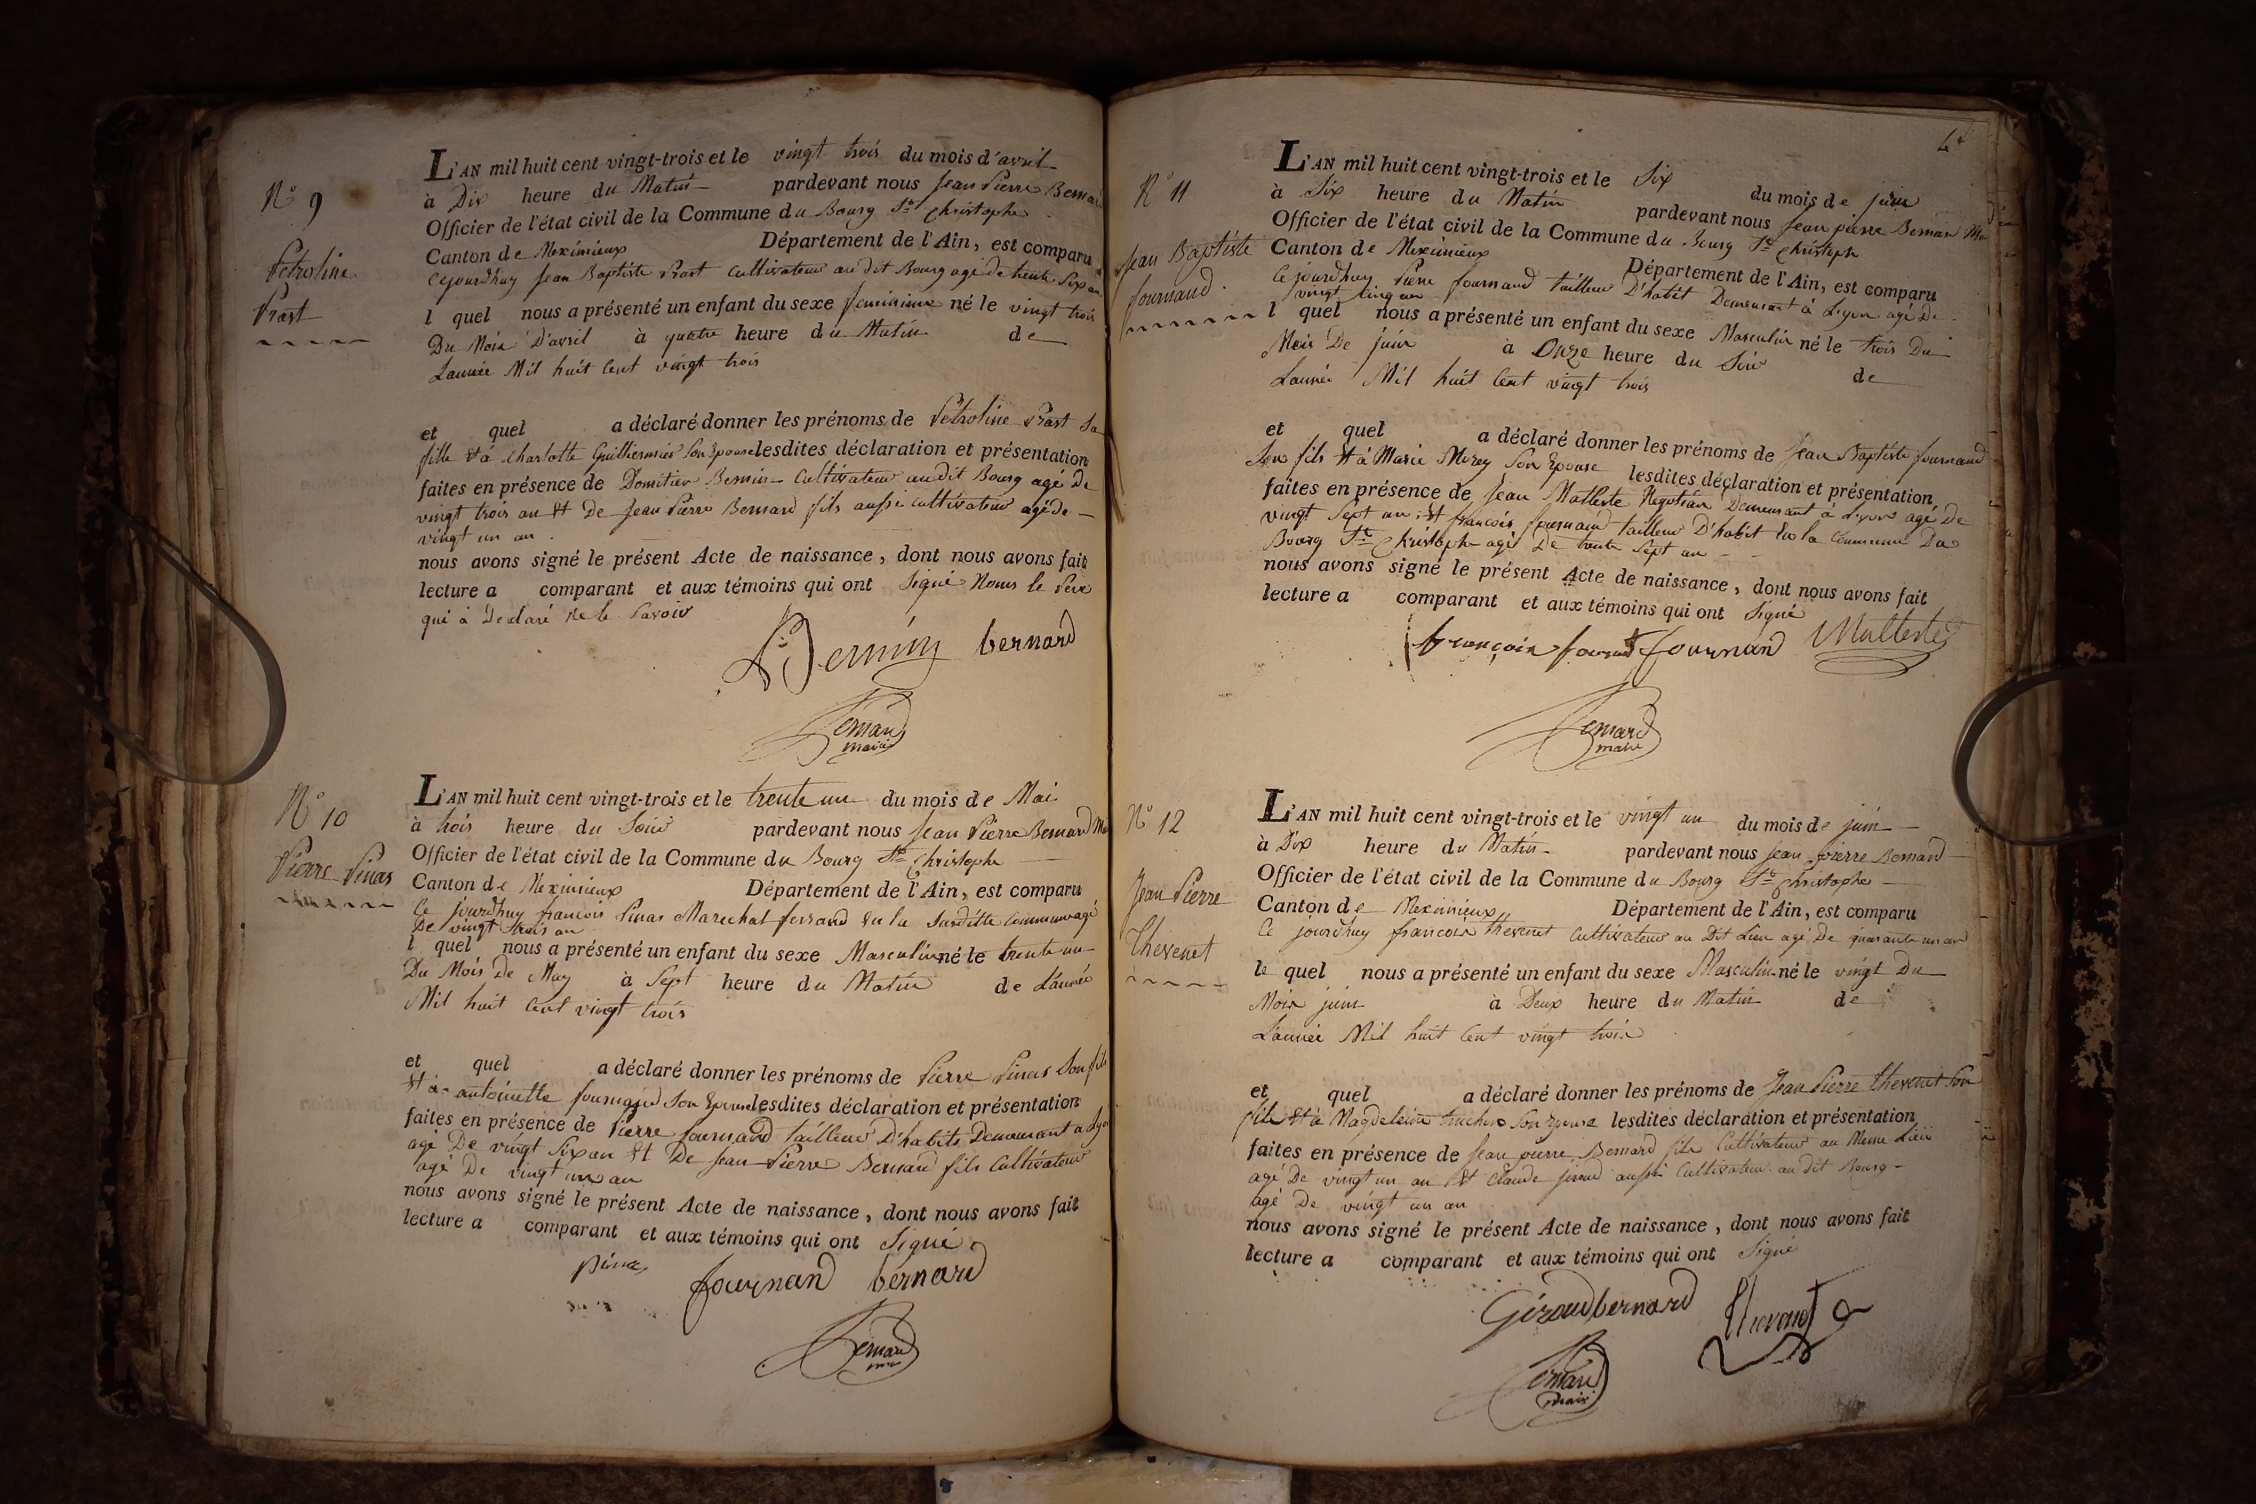 N° 9
Petroline
Prast
L'AN mil huit cent vingt-trois et le vingt trois du mois d'avril
à Dix heure du Matin pardevant nous Jean Pierre Bernard
Officier de l'état civil de la Commune du Bourg St Christophe
Canton de Meximieux Département de l'Ain, est comparu
Cejourdhuy Jean Baptiste Prast Cultivateur au dit Bourg agé de trente Six an
l quel nous a présenté un enfant du sexe feminime né le vingt trois
Du Mois D'avril à quatre heure du Matin de
Lannée Mil huit Cent vingt trois
et quel a déclaré donner les prénoms de Petroline Prast Sa
fille Et à Charlotte Guilliermier Son Epouse lesdites déclaration et présentation
faites en présence de Domitien Bernin Cultivateur au dit Bourg agé De
vingt trois an Et De Jean Pierre Bernard fils aussi Cultivateur agé de
vingt un an.
nous avons signé le présent Acte de naissance, dont nous avons fait
lecture a comparant et aux témoins qui ont Signé Nons le Pere
qui à Déclaré Ne le Savoir
Bernin bernard
Bernard
maire
N° 10
Pierre Pinas
L'AN mil huit cent vingt-trois et le trente un du mois de Mai
à trois heure du Soir pardevant nous Jean Pierre Bernard
Officier de l'état civil de la Commune du Bourg St Christophe
Canton de Meximieux Département de l'Ain, est comparu
Ce jourdhuy francois Pinas Marechal ferrand en la Sus ditte Commune agé
De vingt trois an
l quel nous a présenté un enfant du sexe Masculin né le trente un
Du Mois De May à Sept heure du Matin de L'année
Mil huit Cent vingt trois
et quel a déclaré donner les prénoms de Pierre Pinas Son fils
Et à antoinette fournand Son Epouse lesdites déclaration et présentation
faites en présence de Pierre fournand tailleur D'habits Demeurant a Lyon
agé De vingt Six an Et De Jean Pierre Bernard fils Cultivateur
agé De vingt un an
nous avons signé le présent Acte de naissance, dont nous avons fait
lecture a comparant et aux témoins qui ont Signé
pinas fournand bernard
Bernard
4
N° 11
Jean Baptiste
fournand.
L'AN mil huit cent vingt-trois et le Six du mois de juin
à Six heure du Matin pardevant nous Jean pierre Bernard
Officier de l'état civil de la Commune du Bourg St Christoph
Canton de Meximieux Département de l'Ain, est comparu
Ce jourdhuy Pierre fournand tailleur D'habit Demeurant à Lyon agé De
vingt Cinq an
l quel nous a présenté un enfant du sexe Masculin né le trois Du
Mois De juin à Onze heure du Soir de
Lannée Mil huit Cent vingt trois
et quel a déclaré donner les prénoms de Jean Baptiste fournand
Son fils Et à Marie Morey Son Epouse lesdites déclaration et présentation
faites en présence de Jean Malleste Negotian Demeurant à Lyon agé De
vingt Sept an, Et francois fournand tailleur D'habit En la Commune Du
Bourg St Christophe agé De trente Sept an
nous avons signé le présent Acte de naissance, dont nous avons fait
lecture a comparant et aux témoins qui ont Signé
françois fournand fournand Malleste
Bernard
maire
N° 12
Jean Pierre
Thevenet
L'AN mil huit cent vingt-trois et le vingt un du mois de juin
à Dix heure du Matin pardevant nous Jean pierre Bernard
Officier de l'état civil de la Commune du Bourg St Christophe
Canton de Meximieux Département de l'Ain, est comparu
Ce jourdhuy francois thevenet Cultivateur au Dit Lieu agé De quarante un an
le quel nous a présenté un enfant du sexe Masculin né le vingt Du
Mois juin à Deux heure du Matin de
L'année Mil huit Cent vingt trois
et quel a déclaré donner les prénoms de Jean Pierre thevenet Son
fils Et à Magdeleine Son Epouse lesdites déclaration et présentation
faites en présence de Jean pierre Bernard fils Cultivateur au Meme Lieu
agé De vingt un an Et Claude jiroud aussi Cultivateur au dit Bourg
agé De vingt un an
nous avons signé le présent Acte de naissance, dont nous avons fait
lecture a comparant et aux témoins qui ont Signé
Giroud bernard thevenet
Bernard
maire